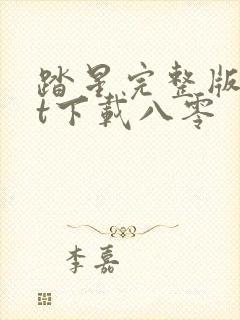 踏星完整版
t下载八零
李嘉